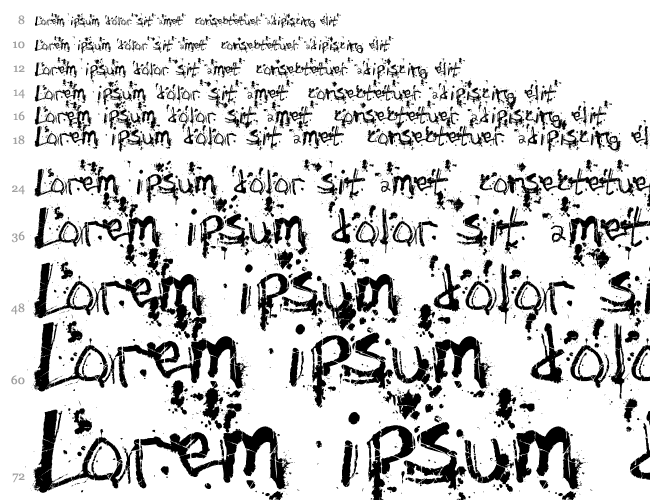 8 Lorem ipsum dolor sit amet consectetuer adipiscing elit
10 Lorem ipsum dolor sit amet consectetuer adipiscing elit
12 Lorem ipsum dolor sit amet consectetuer adipiscing elit
14 Lorem ipsum dolor sit amet consectetuer adipiscing elit
16 Lorem ipsum dolor sit amet consectetuer adipiscing elit
18 Lorem ipsum dolor sit amet consectetuer adipiscing el
24 Lorem ipsum dolor sit amet consectetue
36 Lorem ipsum dolor sit amet
48 Lorem ipsum dolor si
60 Lorem ipsum dolo
72 Lorem ipsum